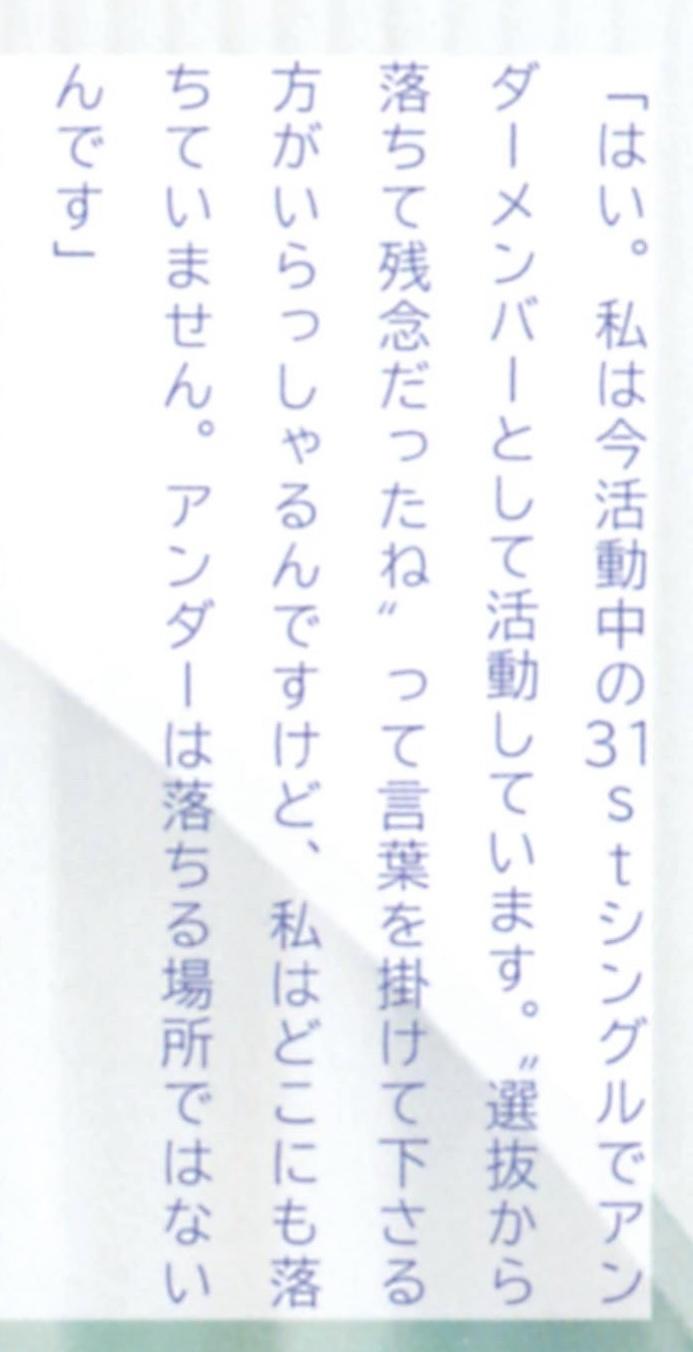 「はい。私は今活動中の31stシングルでアン
ダーメンバーとして活動しています。〝選抜から
落ちて残念だったね〟って言葉を掛けて下さる
方がいらっしゃるんですけど、私はどこにも落
ちていません。アンダーは落ちる場所ではない
んです」